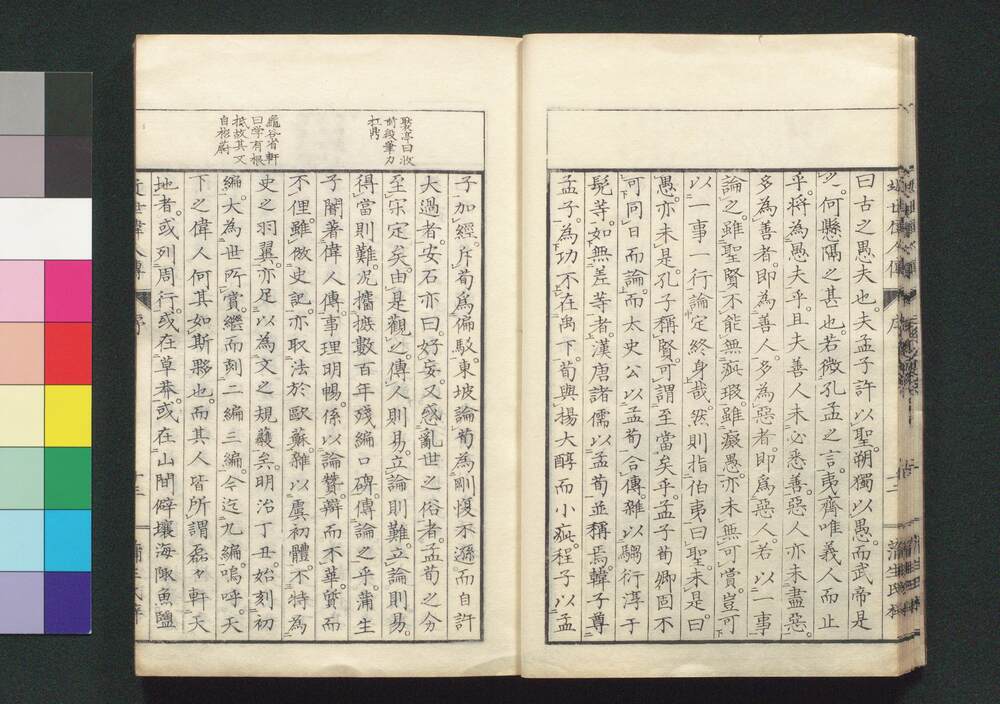 曰古之愚夫也。夫孟子許以聖朔獨以愚。而武帝是
之。何懸隔之甚也。若微孔孟之言夷齊唯義人而止
乎。將為愚夫乎。且夫善人未必悉善。惡人亦未盡惡。
多為善者。即為善人。多為惡者。即爲惡人。若以一事
論之。雖聖賢不能無疵瑕。雖癡愚。亦未無可賞。豈可
以一事一行論定終身哉。然則指伯夷曰聖。未是。曰
愚。亦未是。孔子稱賢。可謂至當矣乎。孟子荀卿固不
可同日而論。而太史公以孟荀合傳。雜以騶衍淳于
髡等。如無差等者。漢唐諸儒以孟荀並稱焉。韓子尊
孟子。為功不在禹下。荀與揚大醇而小疵。程子以孟
子加經。斥荀爲偏駁。東坡論荀為剛愎不遜。而自許
大過者。安石亦曰。好妄。又惑亂世之俗者。孟荀之分
至宋定矣。由是觀之。傳人則易。立論則難。立論則易。
得當則難。况攟摭數百年殘編口碑傳論之乎。蒲生
子闇著偉人傳。事理明暢。係以論贊。辯而不華。質而
不俚。雖倣史記。亦取法於歐蘇。雜以虞初體。不特為
史之羽翼。亦足以為文之規䕶矣。明治丁丑。始刻初
編。大為世所賞。繼而刻二編三編。今迄九編。嗚呼。天
下之偉人何其如斯夥也。而其人皆所謂磊々軒天
地者。或列周行。或在草莽。或在山間僻壤海陬魚鹽
裳亭曰收
前段筆力
扛鼎
龜谷省軒
曰学有根
柢故其文
自彬蔚
近世偉人傳
序
十三
蒲生氏梓